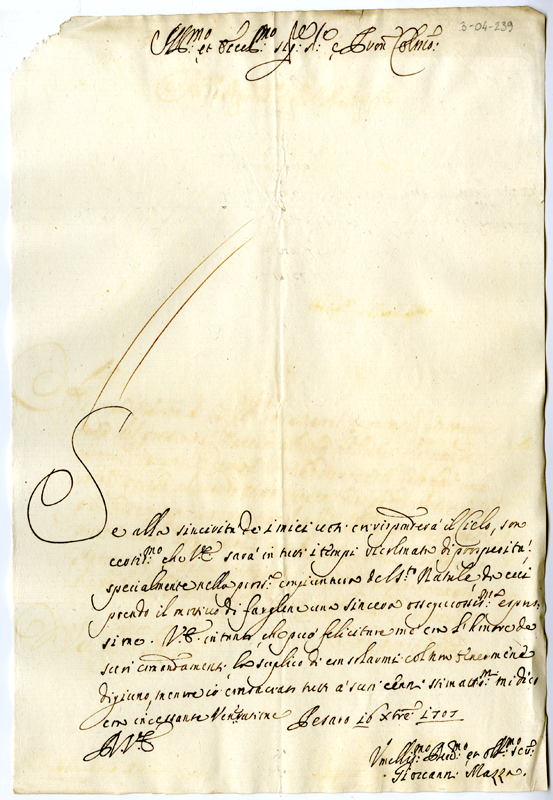 3-04-239
Ill:mo et Ecc:mo Sig:re Pron Colmo:
Se alla sincerità de i miei voti corrisponderà il Cielo, son
certiss:mo che V.E. sarà in tutti i tempi ricolmata di prosperità,
specialmente nella pross:a congiuntura del S:to Natale, da cui
prendo il motivo di fargliene una sincera ossequiosiss:ma espres
sione. V.E. intanto, che può felicitare me con l'honore de
suoi comandamenti, la suplico di consolarmi col non tenermene
digiuno, mentre io consacrato tutto a' suoi cenni stimatiss:mi mi dico
con incessante Veneratione Pesaro 16 Xbre 1707
D.V.E.
Umiliss:mo Dev:mo et obl:mo Ser:
Giovann: Mazza.